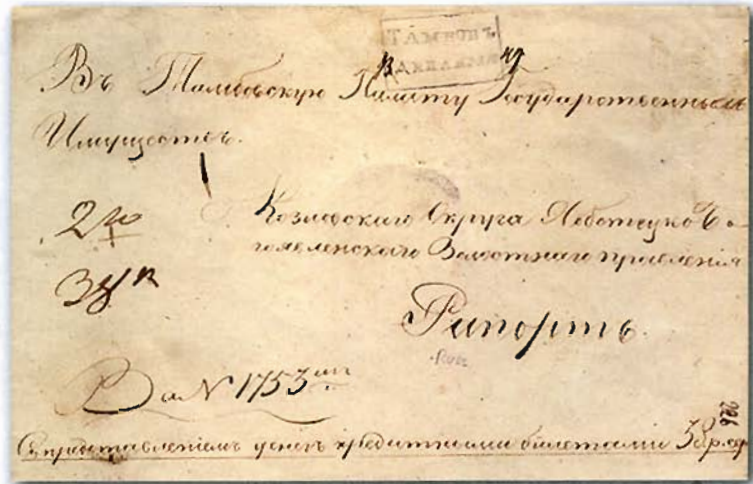 ТАМБОВЪ
Въ Тамбовскую Палату Государственныхъ
Имуществъ.
Козловскаго Округа Бо-
гоявленскаго Волостнаго правленія
38 к
Рапортъ.
За № 1753
226
Съ представленіемъ денегъ кредитными билетами 38 р. сер